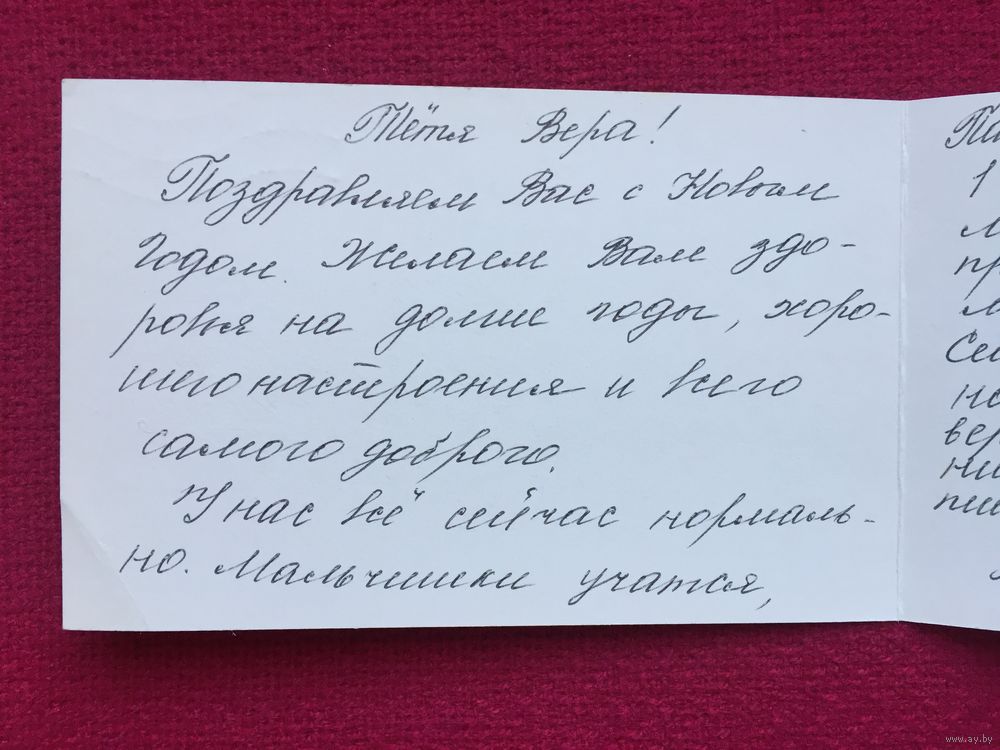 Тётя Вера!
Поздравляем Вас с Новым
Годом. Желаем Вам здо-
ровья на долгие годы, хоро-
шего настроения и всего
самого доброго.
У нас всё сейчас нормаль-
но. Мальчишки учатся,
1
www.ay.by